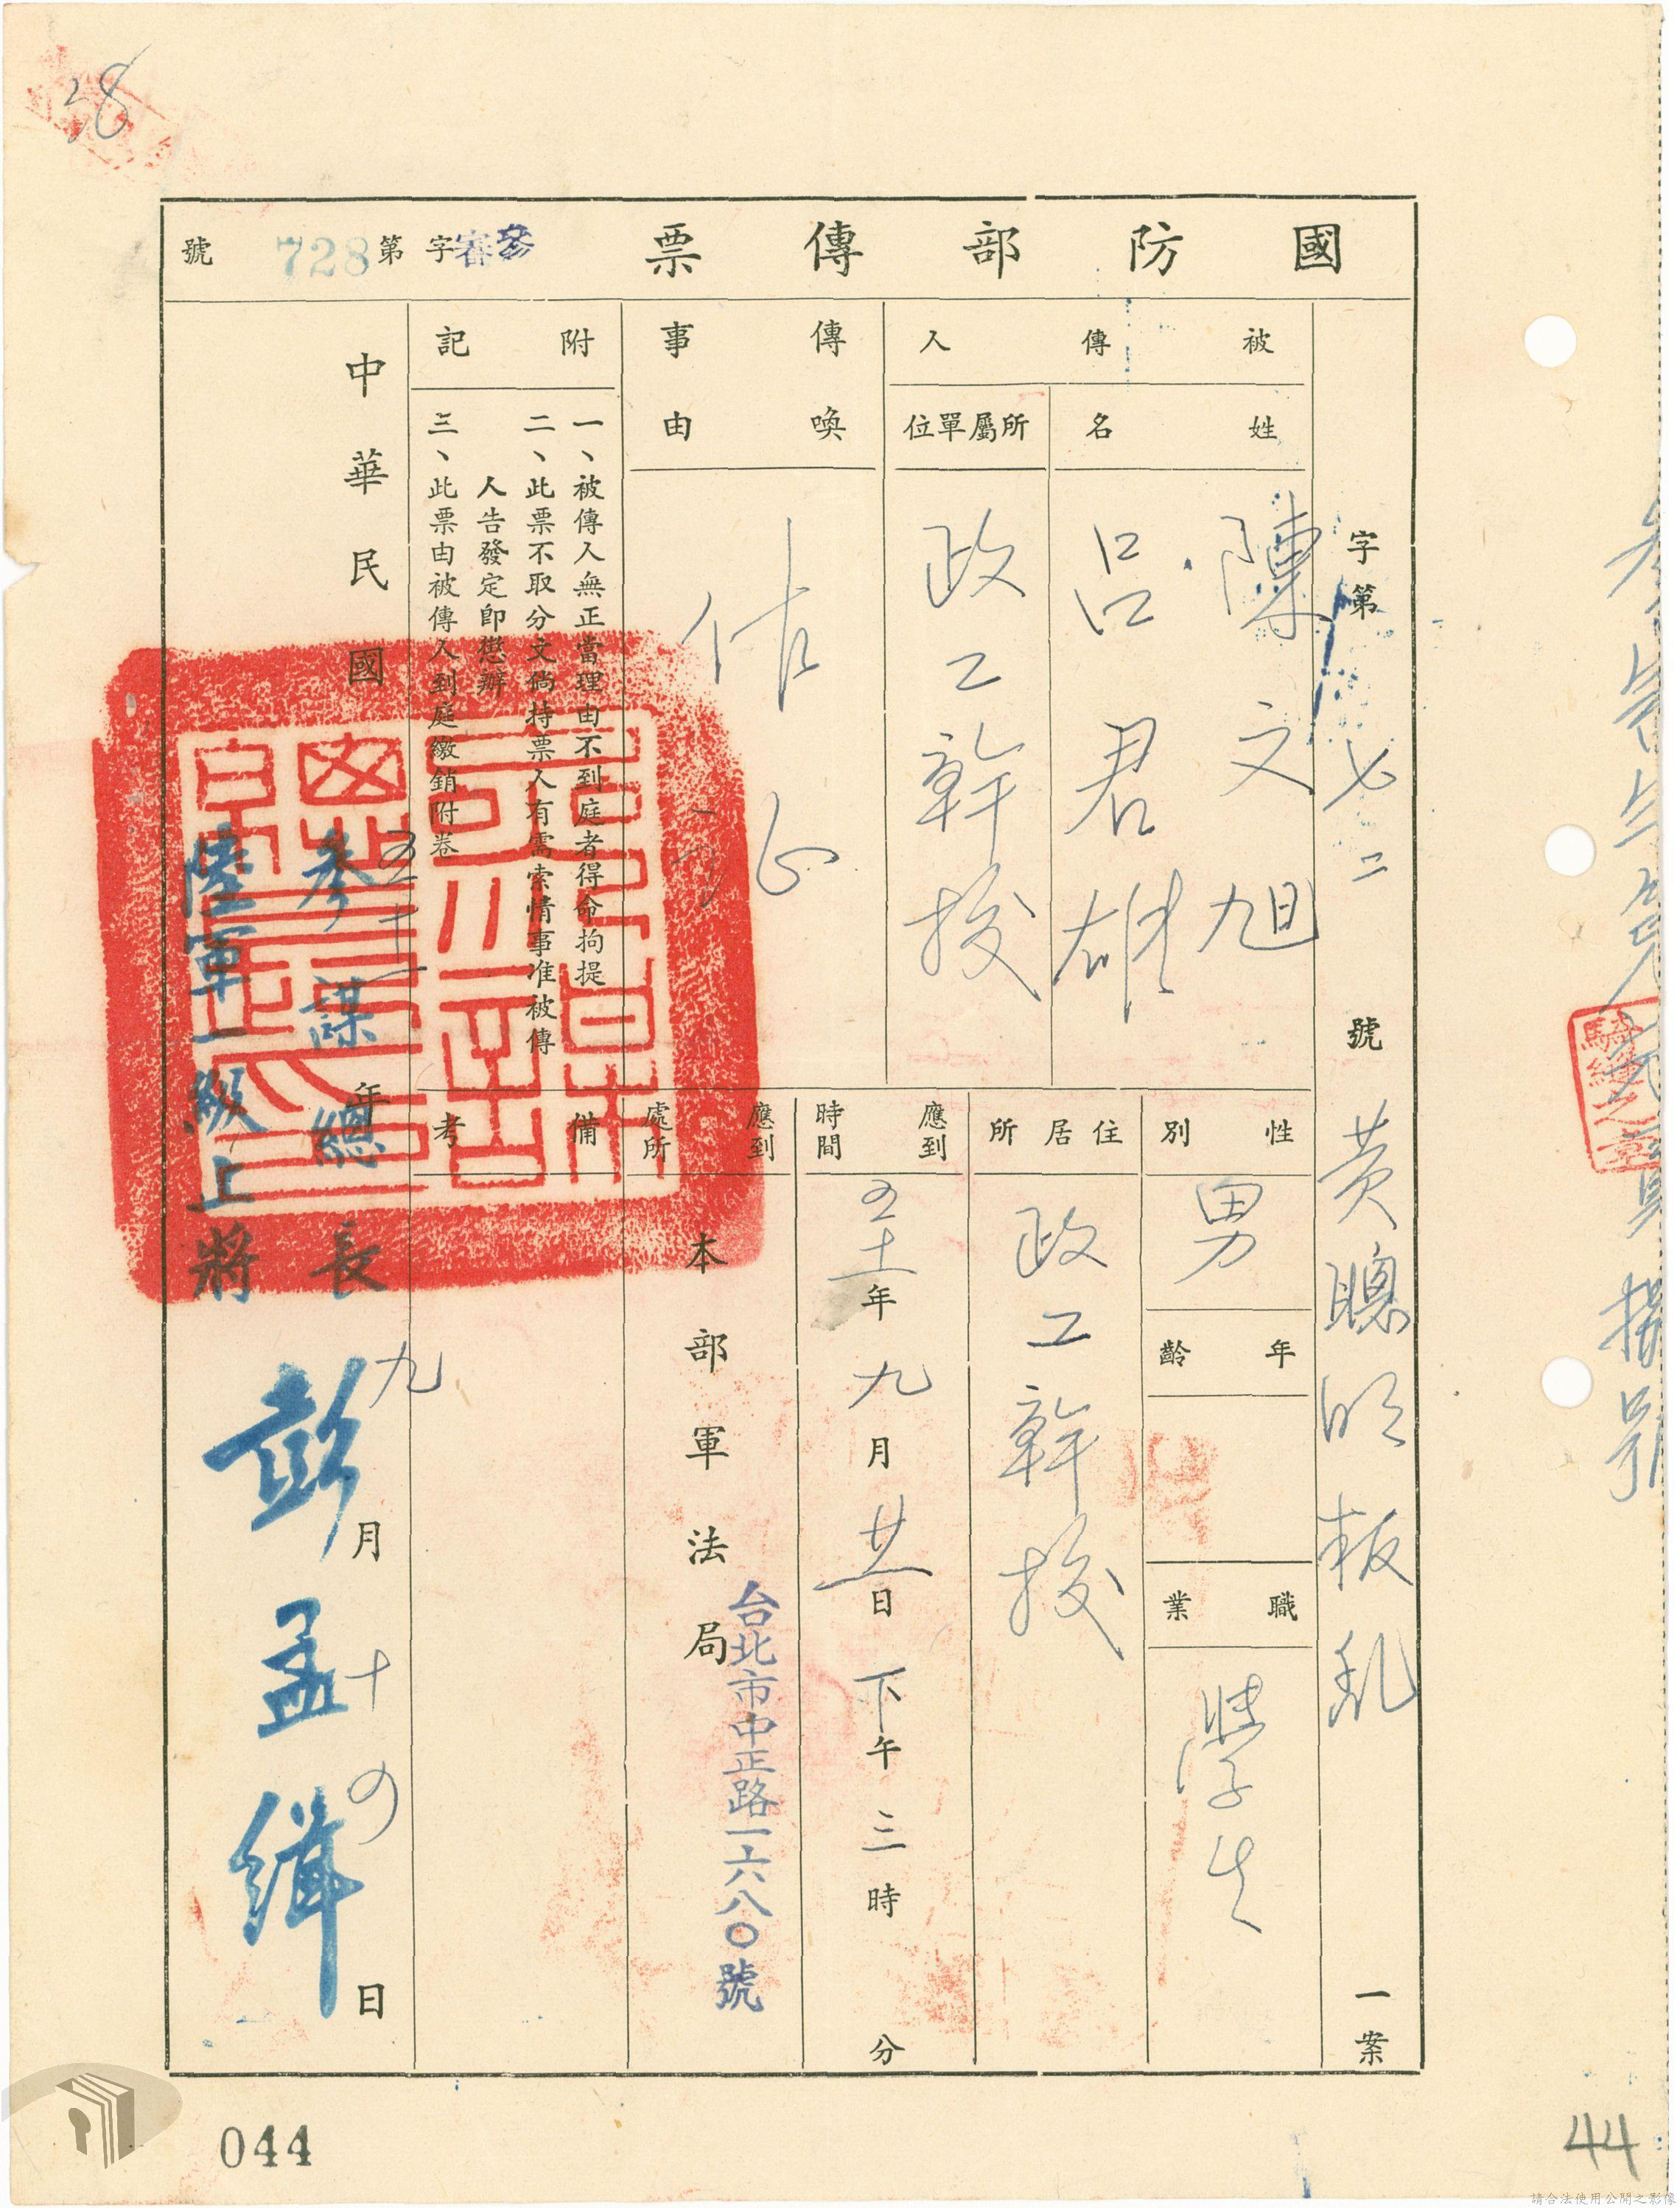 28
國防部傳票
參審字第728號
字第七二號黃聰明叛亂一案
被傳人
姓名
陳文旭
呂君雄
所屬單位
政工幹校
性別
男
年齡
職業
學生
住居所
政工幹校
傳喚事由
作證
應到時間
五十一年九月廿一日下午三時 分
應到處所
本部軍法局
台北市中正路一六八〇號
附記
一、被傳人無正當理由不到庭者得命拘提
二、此票不取分文倘持票人有需索情事准被傳
人告發定即懲辦
三、此票由被傳人到庭繳銷附卷
備考
參謀總長
陸軍一級上將
彭孟緝
中華民國五十一年九月十四日
騎縫之章
044
44
請合法使用公開之影像